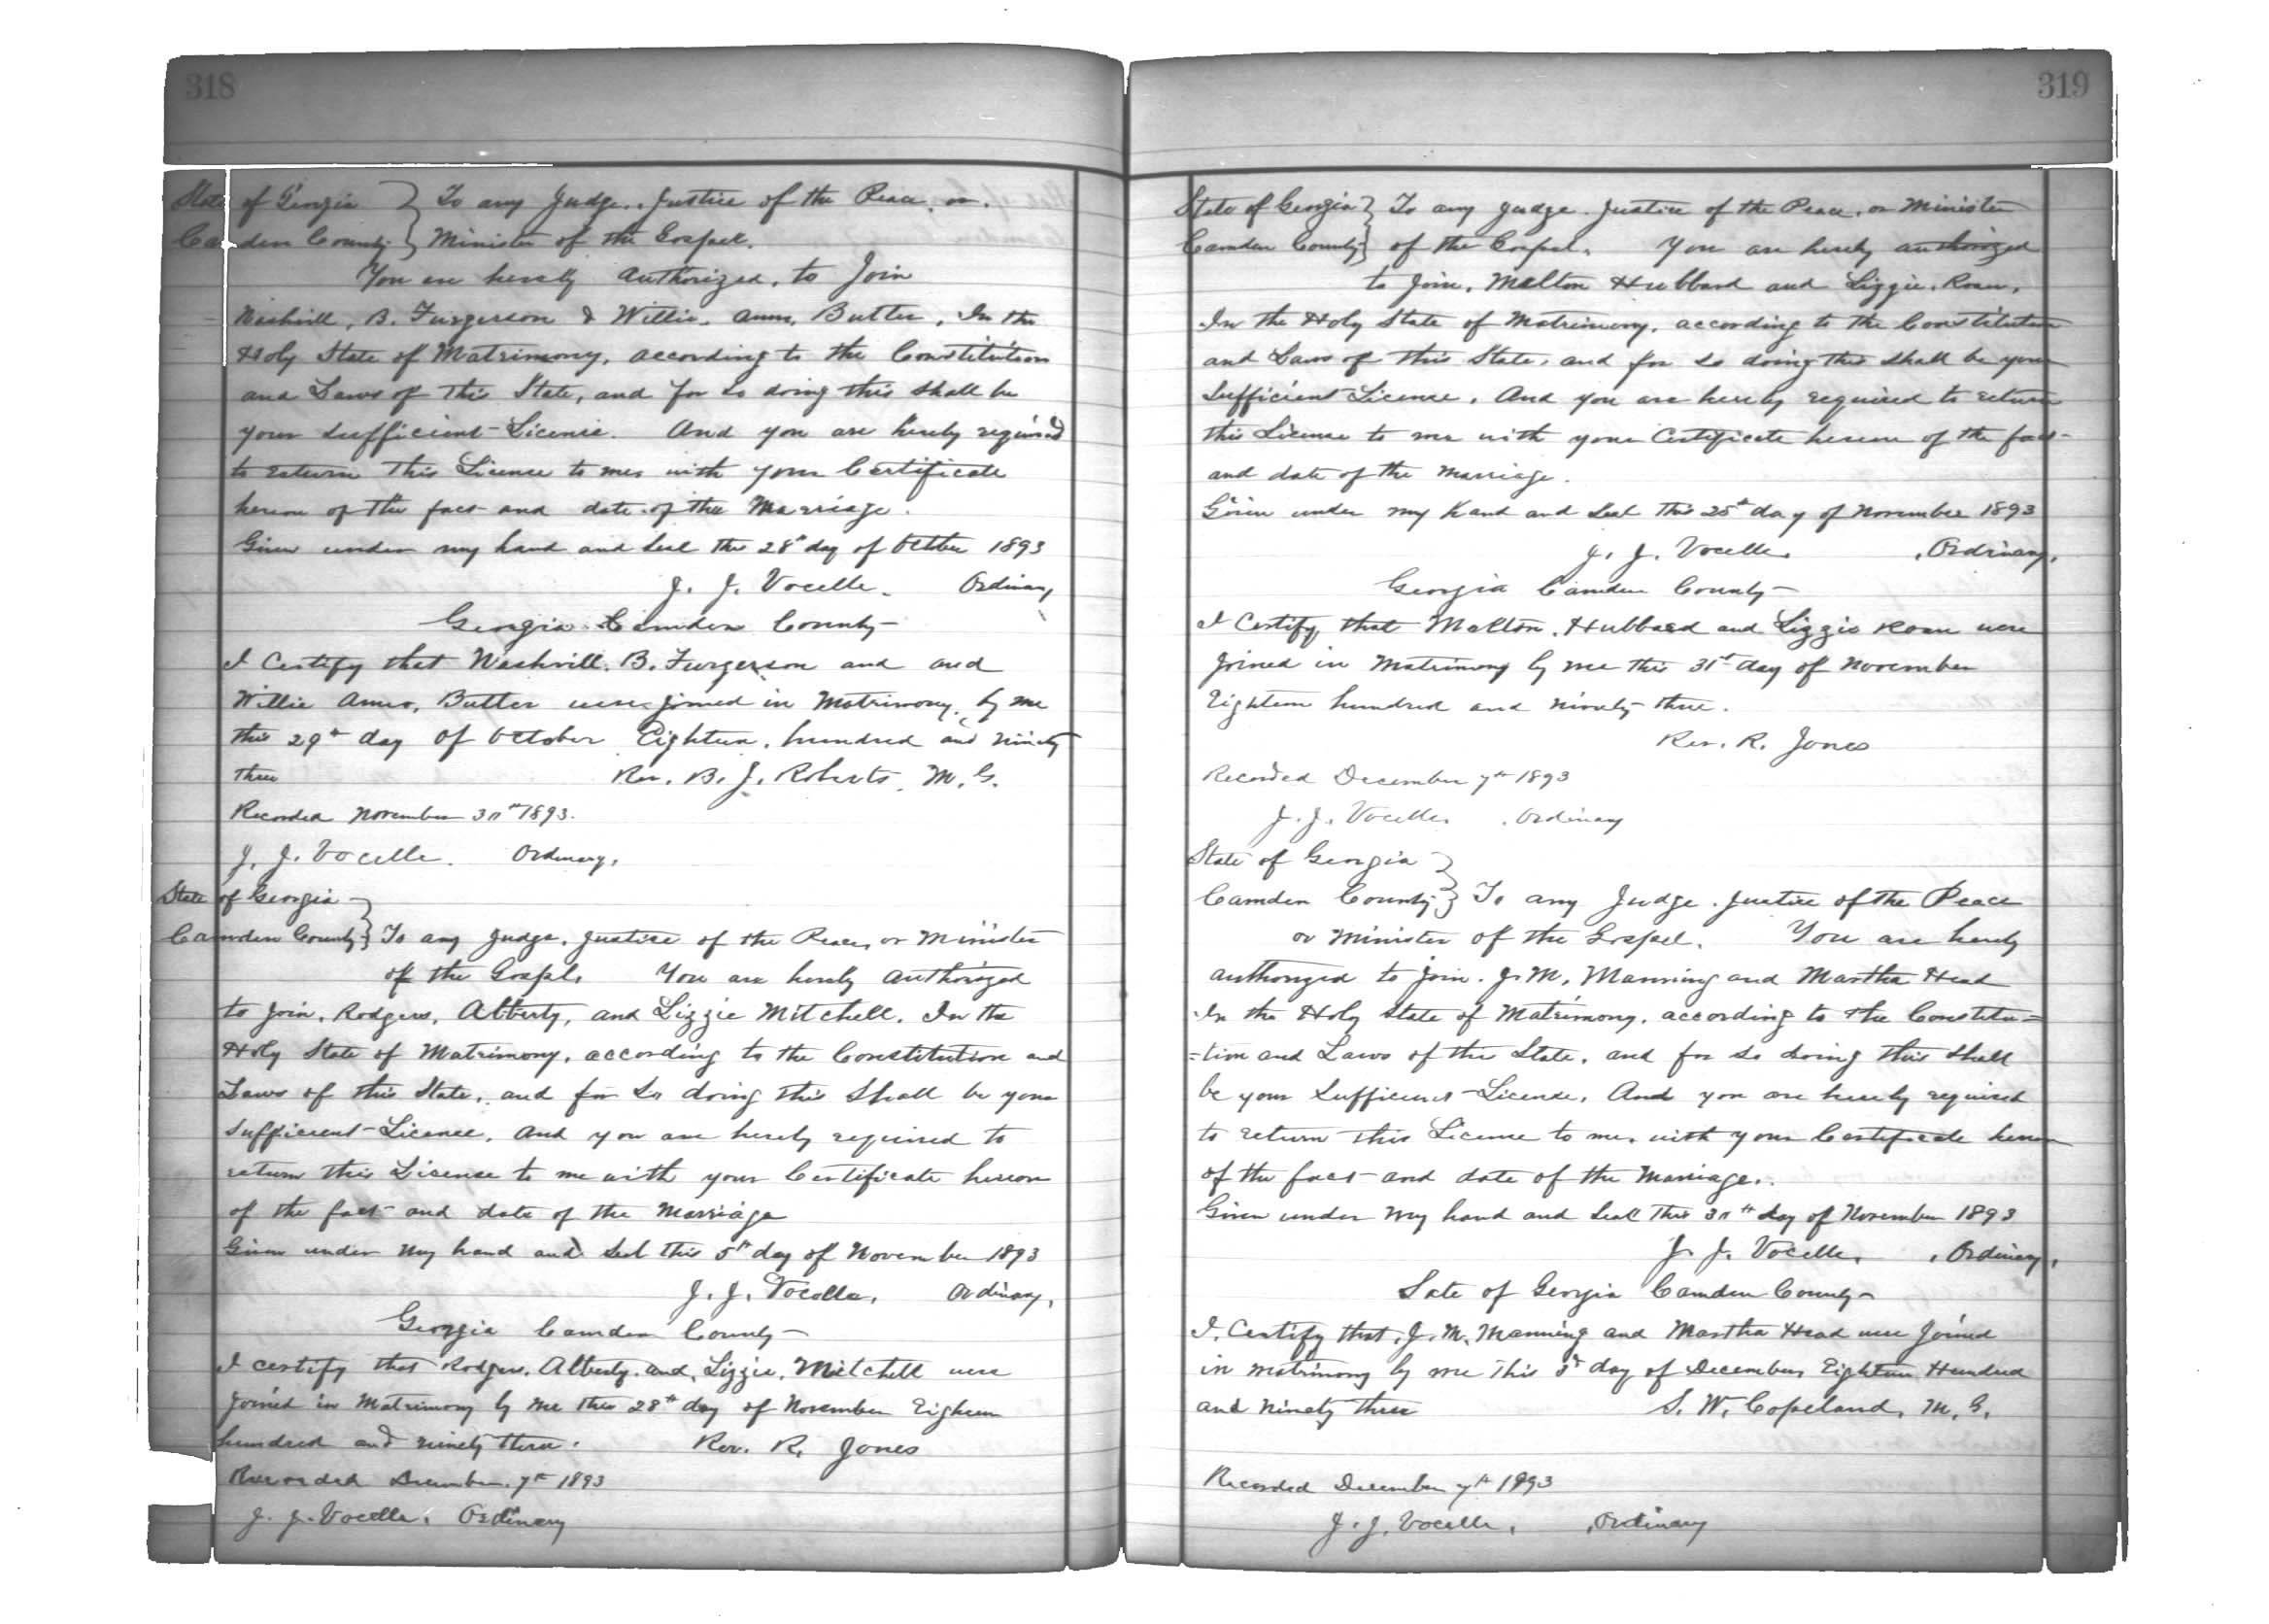 318
State of Georgia } To any Judge, Justice of the Peace, or,
Camden County } Minister of the Gospel.
You are hereby Authorized, to Join
Nashvill, B. Furgerson & Willie, Anna, Butler, In the
Holy State of Matrimony, according to the Constitution
and Laws of this State, and for so doing this shall be
your sufficient License. And you are hereby required
to return this License to me, with your Certificate
hereon of the fact and date of the Marriage.
Given under my hand and Seal this 28th day of October 1893
J. J. Vocelle. Ordinary
Georgia Camden County
I Certify that Nashvill. B. Furgerson and and
Willie Anna, Butler were joined in Matrimony, by me
this 29th day of October Eighteen, hundred and ninety
three Rev. B. J. Roberts, M. G.
Recorded November 30th 1893.
J. J. Vocelle. Ordinary,
State of Georgia }
Camden County } To any Judge, Justice of the Peace, or Minister
of the Gospel, You are hereby authorized
to join, Rodgers, Alberty, and Lizzie Mitchell. In the
Holy State of Matrimony, according to the Constitution and
Laws of this State, and for so doing this Shall be your
Sufficient License, And you are hereby required to
return this License to me with your Certificate hereon
of the fact and date of the Marriage
Given under my hand and Seal this 5th day of November 1893
J. J. Vocelle, Ordinary,
Georgia Camden County
I certify that Rodgers, Alberty, and, Lizzie, Mitchell were
joined in Matrimony by me this 28th day of November Eighteen
hundred and ninety three. Rev. R, Jones
Recorded December, 7th 1893
J. J. Vocelle, Ordinary
319
State of Georgia } To any Judge, Justice of the Peace, or Minister
Camden County } of the Gospel, You are hereby authorized
to join, Melton Hubbard and Lizzie, Roan,
In the Holy State of Matrimony, according to the Constitution
and Laws of this State, and for so doing this shall be your
Sufficient License, And you are hereby required to return
this License to me with your Certificate hereon of the fact
and date of the Marriage.
Given under my hand and Seal this 25th day of November 1893
J. J. Vocelle, Ordinary,
Georgia Camden County
I Certify that Melton, Hubbard and Lizzie Roan were
Joined in Matrimony by me this 31st day of November
Eighteen hundred and ninety three.
Rev. R. Jones
Recorded December 7th 1893
J. J. Vocelle, Ordinary
State of Georgia }
Camden County } To any Judge, Justice of the Peace
or Minister of the Gospel. You are hereby
authorized to join. J. M, Manning and Martha Head
In the Holy State of Matrimony, according to the Constitu=
=tion and Laws of this State, and for so doing this Shall
be your Sufficient License, And you are hereby required
to return this License to me, with your Certificate hereon
of the fact and date of the Marriage.
Given under my hand and Seal this 30th day of November 1893
J. J. Vocelle, Ordinary,
Sate of Georgia Camden County
I, Certify that, J. M, Manning and Martha Head were Joined
in matrimony by me This 3d day of December, Eighteen Hundred
and Ninety three S. W, Copeland, M, G,
Recorded December 7th 1893
J. J. Vocelle, Ordinary